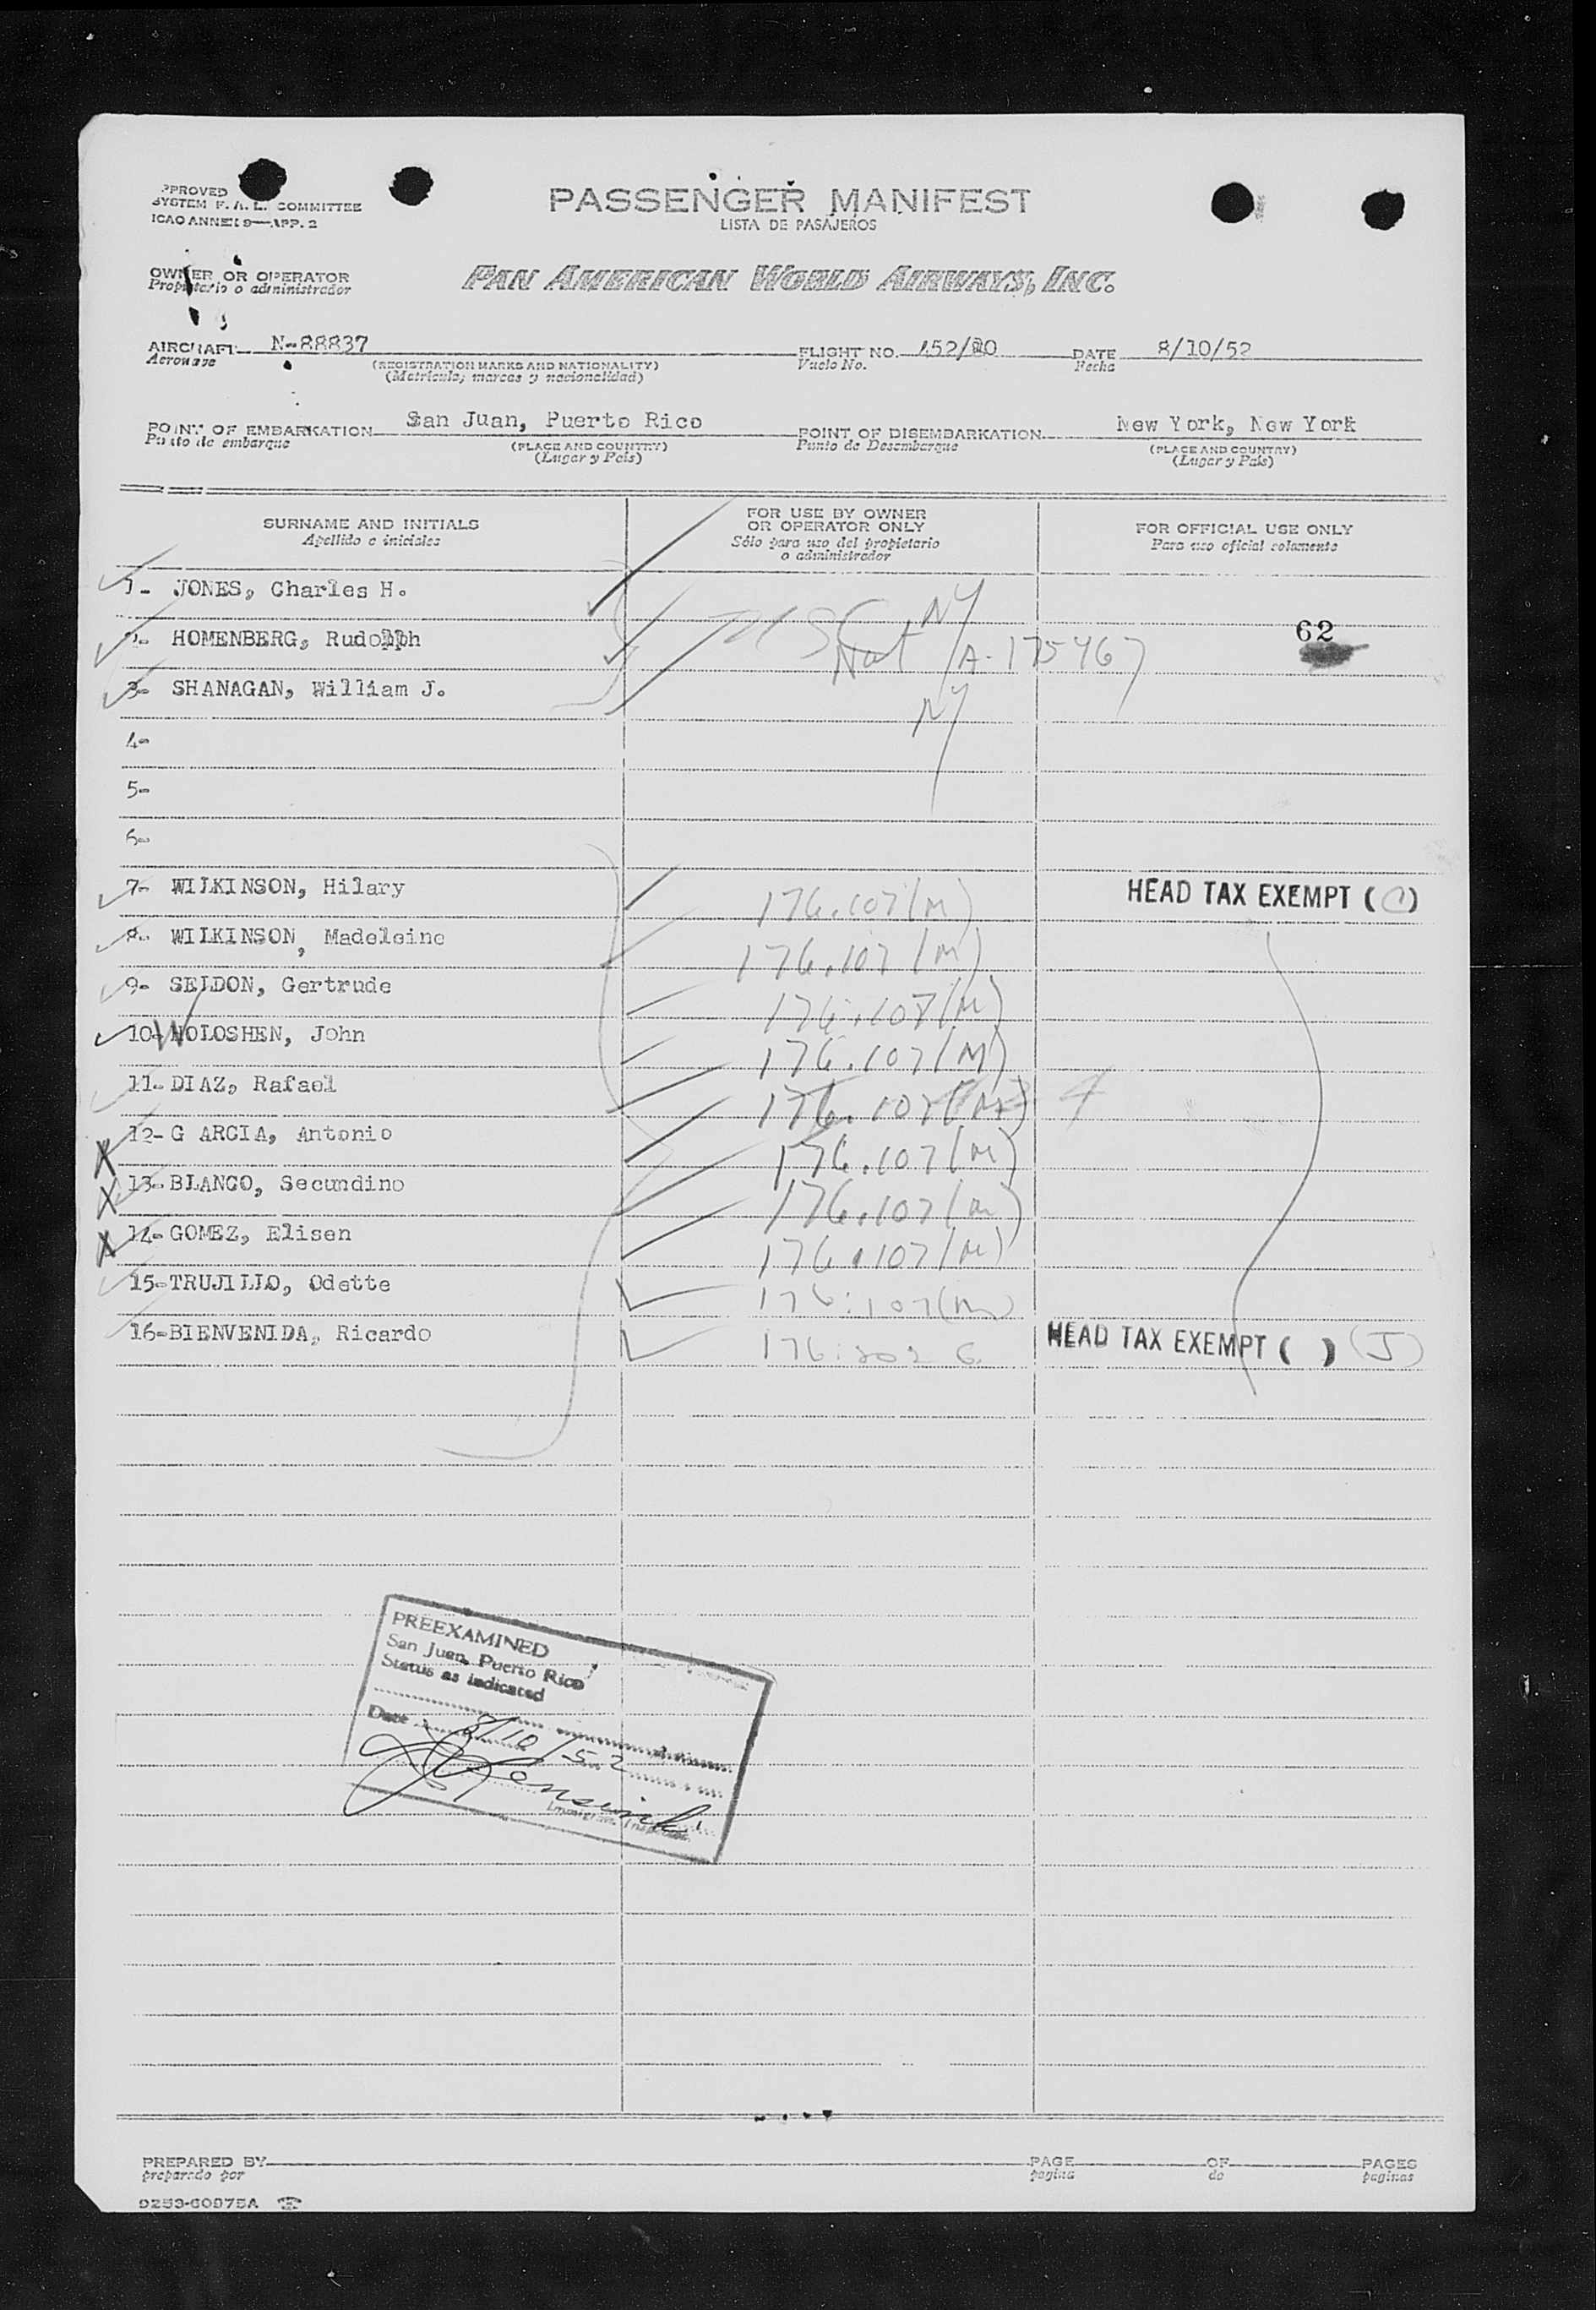 PPROVED
SYSTEM F. A. L. COMMITTEE
ICAO ANNEX 9—APP. 2
PASSENGER MANIFEST
LISTA DE PASAJEROS
OWNER OR OPERATOR
Propietario o administrador
PAN AMERICAN WORLD AIRWAYS, INC.
AIRCRAFT N-88837 FLIGHT NO. 452/20 DATE 8/10/52
Aeronave (REGISTRATION MARKS AND NATIONALITY) Vuelo No. Fecha
(Matrícula; marcas y nacionalidad)
POINT OF EMBARKATION San Juan, Puerto Rico POINT OF DISEMBARKATION New York, New York
Punto de embarque (PLACE AND COUNTRY) Punto de Desembarque (PLACE AND COUNTRY)
(Lugar y País) (Lugar y País)
SURNAME AND INITIALS
Apellido e iniciales
FOR USE BY OWNER
OR OPERATOR ONLY
Sólo para uso del propietario
o administrador
FOR OFFICIAL USE ONLY
Para uso oficial solamente
1- JONES, Charles H. NY
2- HOMENBERG, Rudolph Nat A-175467 62
3- SHANAGAN, William J. NY
4-
5-
6-
7- WILKINSON, Hilary 176.107(M) HEAD TAX EXEMPT (1)
8- WILKINSON, Madeleine 176.107(M)
9- SEIDON, Gertrude 176.107(M)
10- WOLOSHEN, John 176.107(M)
11- DIAZ, Rafael 176.107(M) 4
12- G ARCIA, Antonio 176.107(M)
13- BLANCO, Secundino 176.107(M)
14- GOMEZ, Elisen 176.107(M)
15- TRUJILLO, Odette 176.107(M)
16- BIENVENIDA, Ricardo 176.202 HEAD TAX EXEMPT ( ) (J)
PREEXAMINED
San Juan, Puerto Rico
Status as indicated
Date 8/10/52
Immigrant Inspector
PREPARED BY PAGE OF PAGES
preparado por pagina de paginas
9253-60975A